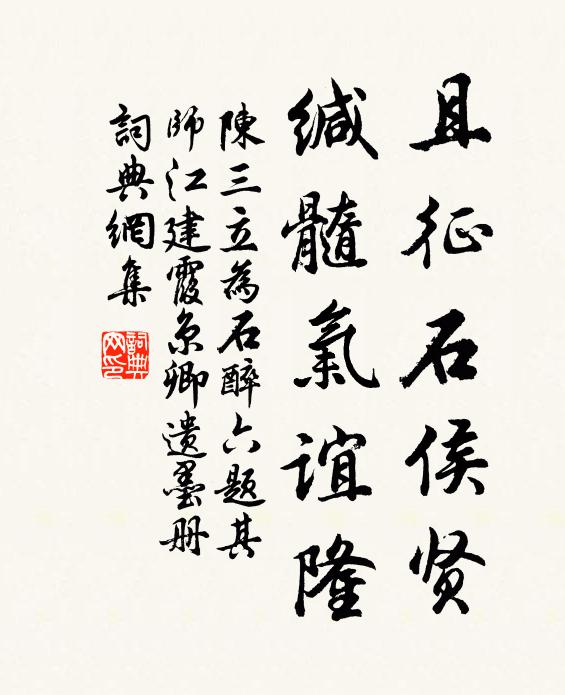 且征石侯贤
缄髓氣谊隆
陳三立為石醉六题其
師江建霞京卿遗墨册
詞典網集
詞典
网印